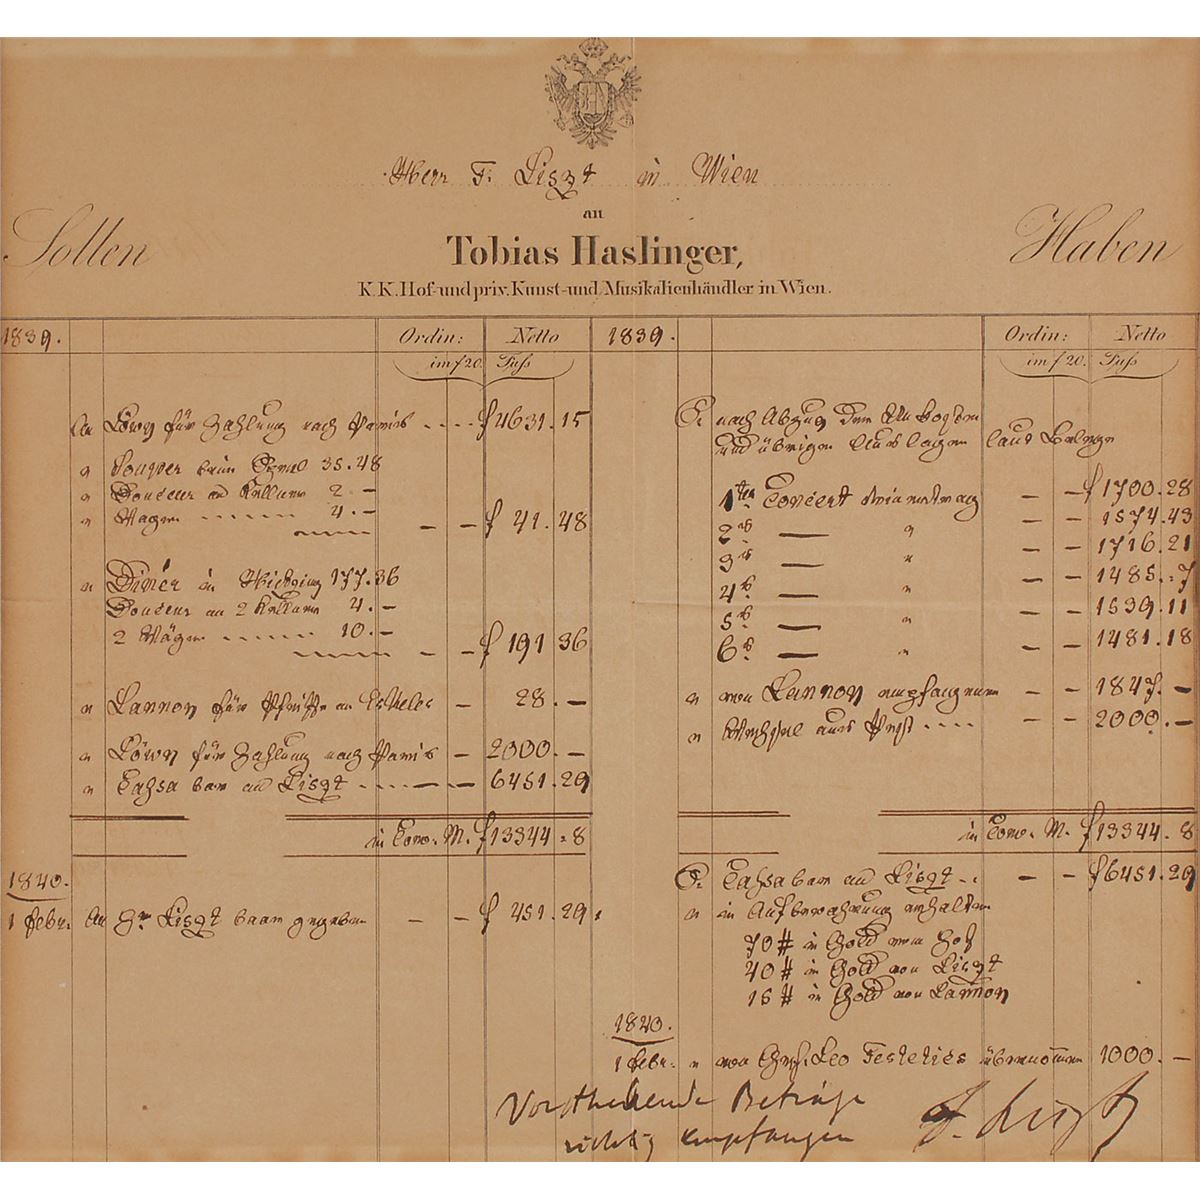 Herr F. Liszt in Wien
an
Sollen
Tobias Haslinger,
Haben
K.K. Hof- und priv. Kunst- und Musikalienhändler in Wien.
1839. Ordin: Netto
im f 20. Fuss
An Löwy für Zahlung nach Paris . . . . f 4631.15
" Souper beim 35.48
" Douceur an Kellner 2.–
" Wagen 4.– – – f 41.48
" Dinér in Hietzing 177.36
Douceur an 2 Kellner 4.–
2 Wägen 10.– – – f 191 36
" Lannoy für an Eskeles – 28.–
" Löwy für Zahlung nach Paris – 2000.–
" Cassa bar an Liszt . . . – – 6451.29
in Conv. M. f 13344 " 8
1840.
1 Febr. An Hr Liszt baar gegeben – – f 451.29
1839. Ordin: Netto
im f 20. Fuss
nach Abzug der
und übrigen Auslagen laut Belege
1ten Concert – – f 1700.28
2t — " – – 1574.43
3t — " – – 1716.21
4t — " – – 1485."7
5t — " – – 1539.11
6t — " – – 1481.18
" von Lannoy empfangenen – – 1847.–
" Wechsel aus Pest . . . . 2000.–
in Conv. M. f 13344.8
Cassa bar an Liszt – – f 6451.29
" in Aufbewahrung erhalten
70 # in Gold vom Hof
40 # in Gold von Liszt
15 # in Gold von Lannoy
1840.
1 Febr. " von Leo Festetics übernommen 1000.–
Vorstehende Beträge
richtig empfangen
F. Liszt